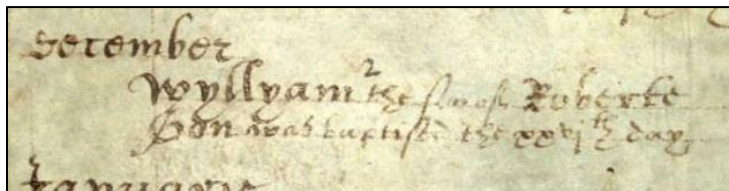 December
Wyllyam 2 the sonne of Roberte
Don was baptised the xxvjth day
January